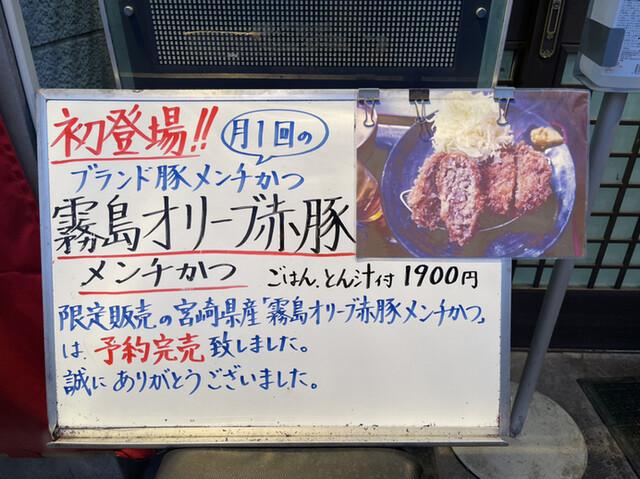 初登場!!
月1回の
ブランド豚メンチかつ
霧島オリーブ赤豚
メンチかつ ごはん、とん汁付 1900円
限定販売の宮崎県産「霧島オリーブ赤豚メンチかつ」
は、予約完売致しました。
誠にありがとうございました。